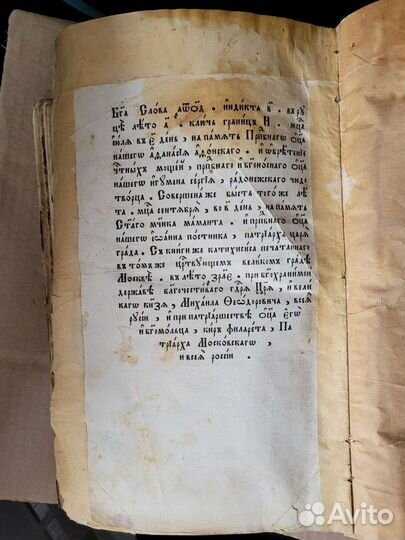 Бг҃а Слова ҂аѱ҃ѻд . индикта в҃ . въ рꙋ
цѣ лѣто а҃ . ключь границъ И . мц҃а
їюлѧ въ є҃ день , на памѧть Прпⷣбнагѡ ѻц҃а
нашегѡ Аѳанасїѧ Аѳонскагѡ . и ѡбрѣтенїе
чⷭ҇тныхъ мощей , прпⷣбнаго и бг҃ѡноснаго ѻц҃а
нашегѡ игꙋмена сергїѧ , радонежскаго чюдо
творца . Совершена же бысть того же лѣ
та . мц҃а сентѧврїѧ , во в҃ день , на памѧть
Ст҃аго мч҃ника маманта . и прпⷣбнаго ѻц҃а
нашегѡ Їѡанна постника , патрїарха царѧ
града . Съ книги же катихисиса печатанаго
въ том же црⷭ҇твꙋющемъ великом градѣ
Москвѣ . въ лѣто ҂зрл҃є . при бг҃охранимой
державѣ благочестиваго гдⷭ҇рѧ Цр҃ѧ , и вели
кагѡ кнѧзѧ , Михаила Ѳеодоровича , всеѧ
рꙋсїи , и при патрїаршествѣ ѻц҃а єгѡ
и бг҃омольца , киръ филарета , Па
трїарха Московскагѡ ,
и всеѧ россїи .
Avito